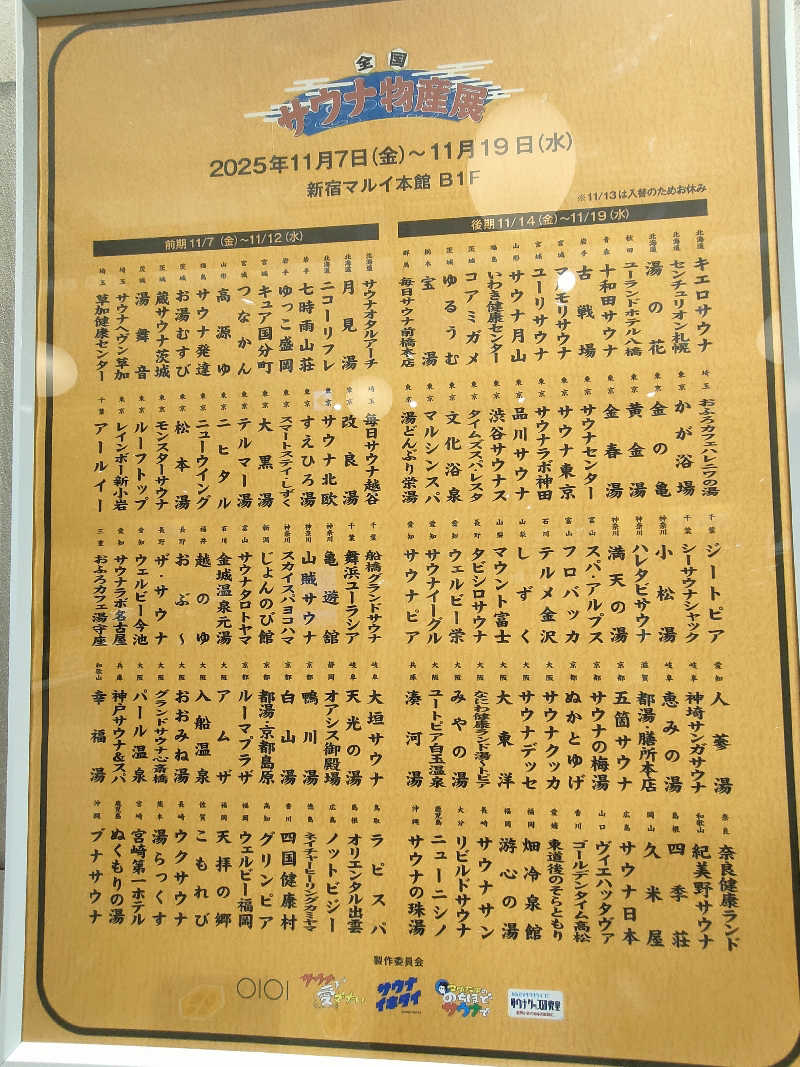 全国
サウナ物産展
2025年11月7日(金)～11月19日(水)
新宿マルイ本館 B1F
※11/13は入替のためお休み
前期 11/7 (金)～11/12 (水)
北海道 サウナオタルアーチ
北海道 月見湯
北海道 ニコーリフレ
岩手 七時雨山荘
岩手 ゆっこ盛岡
宮城 キュア国分町
宮城 つなかん
山形 高源ゆ
福島 サウナ発達
茨城 お湯むすび
茨城 蔵サウナ茨城
茨城 湯舞音
埼玉 サウナヘヴン草加
埼玉 草加健康センター
埼玉 毎日サウナ越谷
東京 改良湯
東京 サウナ北欧
東京 すえひろ湯
東京 スマートステイ・しずく
東京 大黒湯
東京 テルマー湯
東京 ニヒタル
東京 ニューウイング
東京 松本湯
東京 モンスターサウナ
東京 ルーフトップ
東京 レインボー新小岩
千葉 アールイー
千葉 船橋グランドサウナ
千葉 舞浜ユーラシア
神奈川 亀遊舘
神奈川 山賊サウナ
神奈川 スカイスパヨコハマ
新潟 じょんのび館
富山 サウナタロトヤマ
石川 金城温泉元湯
福井 越のゆ
長野 おぶ～
長野 ザ・サウナ
愛知 ウェルビー今池
愛知 サウナラボ名古屋
三重 おふろカフェ湯守座
岐阜 大垣サウナ
岐阜 天光の湯
静岡 オアシス御殿場
京都 鴨川湯
京都 白山湯
京都 都湯・京都島原
京都 ルーマプラザ
大阪 アムザ
大阪 入船温泉
大阪 おおみね湯
大阪 グランドサウナ心斎橋
大阪 パール温泉
兵庫 神戸サウナ&スパ
和歌山 幸福湯
鳥取 ラピスパ
島根 オリエンタル出雲
広島 ノットビジー
徳島 ネイチャーヒーリングカミヤマ
香川 四国健康村
高知 グリンピア
福岡 ウェルビー福岡
福岡 天拝の郷
佐賀 こもれび
長崎 ウクサウナ
熊本 湯らっくす
宮崎 宮崎第一ホテル
鹿児島 ぬくもりの湯
沖縄 ブナサウナ
後期 11/14 (金)～11/19 (水)
北海道 キエロサウナ
北海道 センチュリオン札幌
北海道 湯の花
秋田 ユーランドホテル八橋
青森 十和田サウナ
岩手 古戦場
宮城 マルモリサウナ
宮城 ユーリサウナ
山形 サウナ月山
福島 いわき健康センター
茨城 コアミガメ
茨城 ゆるうむ
栃木 宝湯
群馬 毎日サウナ前橋本店
埼玉 おふろカフェハレニワの湯
東京 かが浴場
東京 金の亀
東京 黄金湯
東京 金春湯
東京 サウナセンター
東京 サウナ東京
東京 サウナラボ神田
東京 品川サウナ
東京 渋谷サウナス
東京 タイムズスパ・レスタ
東京 文化浴泉
東京 マルシンスパ
東京 湯どんぶり栄湯
千葉 ジートピア
千葉 シーサウナシャック
神奈川 小松湯
神奈川 ハレタビサウナ
神奈川 満天の湯
富山 スパ・アルプス
富山 フロバッカ
石川 テルメ金沢
山梨 しずく
山梨 マウント富士
長野 タビシロサウナ
愛知 ウェルビー栄
愛知 サウナイーグル
愛知 サウナピア
愛知 人蔘湯
岐阜 神埼サンガサウナ
岐阜 恵みの湯
滋賀 都湯・膳所本店
京都 五箇サウナ
京都 サウナの梅湯
京都 ぬかとゆげ
大阪 サウナクッカ
大阪 サウナデッセ
大阪 大東洋
大阪 なにわ健康ランド湯〜トピア
大阪 みやの湯
大阪 ユートピア白玉温泉
兵庫 湊河湯
奈良 奈良健康ランド
和歌山 紀美野サウナ
島根 四季荘
岡山 久米屋
広島 サウナ日本
山口 ヴィエハッタヴァ
香川 ゴールデンタイム高松
愛媛 東道後のそらともり
福岡 畑冷泉館
福岡 游心の湯
長崎 サウナサン
大分 リビルドサウナ
鹿児島 ニューニシノ
沖縄 サウナの珠湯
製作委員会
OIOI
サウナイキタイ